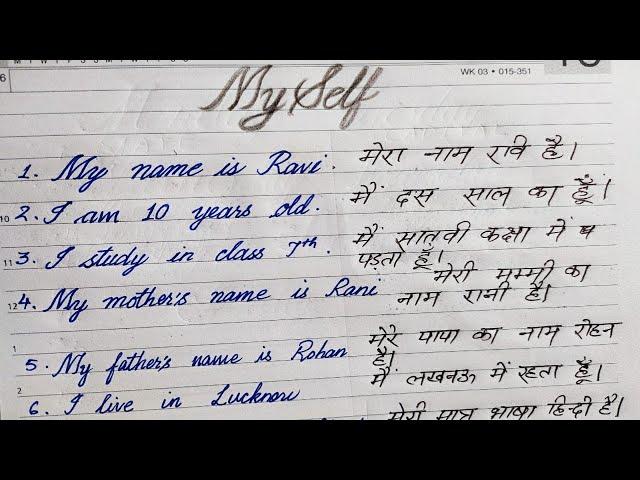 WK 03 • 015-351
6
My Self
1. My name is Ravi. मेरा नाम रवि है।
10 2. I am 10 years old. मैं दस साल का हूँ।
11 3. I study in class 7th. मैं सातवी कक्षा में
पड़ता हूँ।
12 4. My mother's name is Rani मेरी मम्मी का
नाम रानी है।
1
5. My father's name is Rohan मेरे पापा का नाम रोहन
है।
2
6. I live in Lucknow मैं लखनऊ में रहता हूँ।
मेरी मात्र भाषा हिन्दी है।